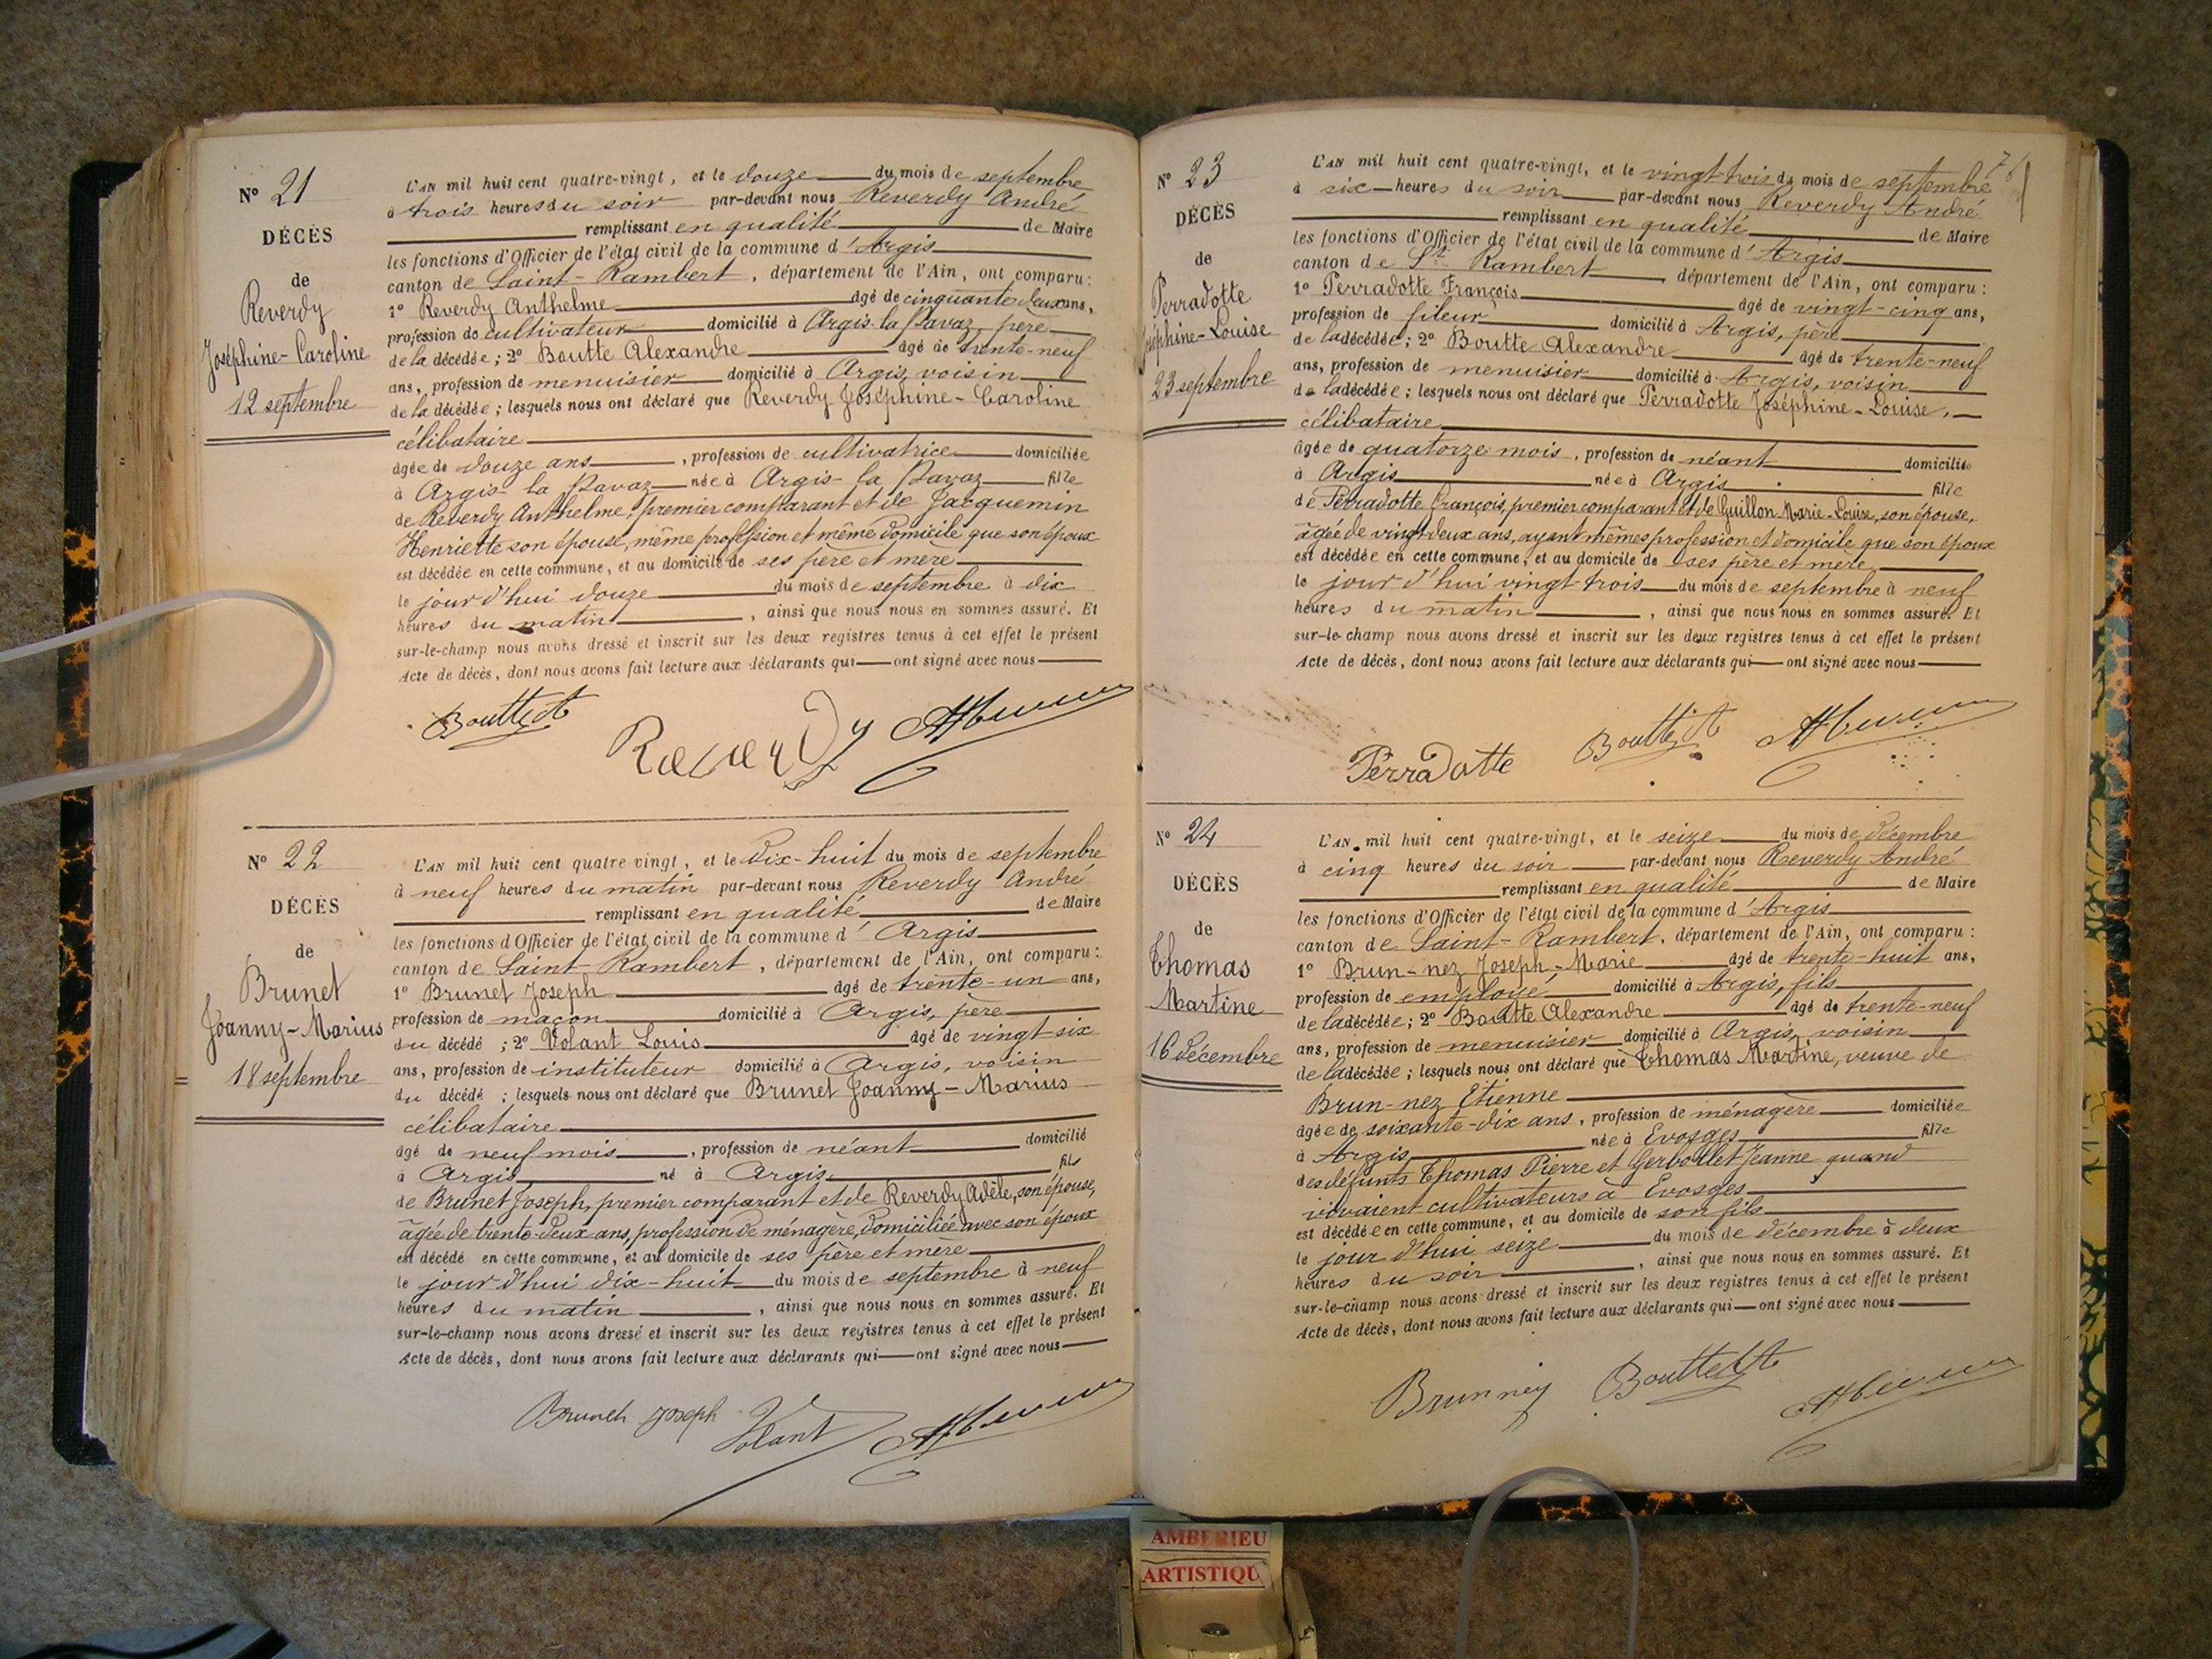 N° 21
DÉCÈS
de
Reverdy
Joséphine-Caroline
12 septembre
L'AN mil huit cent quatre-vingt, et le douze du mois de septembre
à trois heures du soir par-devant nous Reverdy André
remplissant en qualité de Maire
les fonctions d'Officier de l'état civil de la commune d'Argis
canton de Saint-Rambert, département de l'Ain, ont comparu:
1° Reverdy Anthelme âgé de cinquante deux ans,
profession de cultivateur domicilié à Argis la Pavaz, père
de la décédée; 2° Boutte Alexandre âgé de trente-neuf
ans, profession de menuisier domicilié à Argis, voisin
de la décédée; lesquels nous ont déclaré que Reverdy Joséphine-Caroline
célibataire
âgée de douze ans, profession de cultivatrice domiciliée
à Argis la Pavaz née à Argis la Pavaz fille
de Reverdy Anthelme, premier comparant et de Jacquemin
Henriette son épouse, même profession et même domicile que son époux
est décédée en cette commune, et au domicile de ses père et mère
le jour d'hui douze du mois de septembre à dix
heures du matin, ainsi que nous nous en sommes assuré. Et
sur-le-champ nous avons dressé et inscrit sur les deux registres tenus à cet effet le présent
Acte de décès, dont nous avons fait lecture aux déclarants qui ont signé avec nous
Boutte A
Reverdy
N° 22
DÉCÈS
de
Brunet
Joanny-Marius
18 septembre
L'AN mil huit cent quatre vingt, et le dix-huit du mois de septembre
à neuf heures du matin par-devant nous Reverdy André
remplissant en qualité de Maire
les fonctions d'Officier de l'état civil de la commune d'Argis
canton de Saint-Rambert, département de l'Ain, ont comparu:
1° Brunet Joseph âgé de trente-un ans,
profession de maçon domicilié à Argis, père
du décédé; 2° Volant Louis âgé de vingt-six
ans, profession de instituteur domicilié à Argis, voisin
du décédé; lesquels nous ont déclaré que Brunet Joanny-Marius
célibataire
âgé de neuf mois, profession de néant domicilié
à Argis né à Argis fils
de Brunet Joseph, premier comparant et de Reverdy Adèle, son épouse,
âgée de trente-deux ans, profession de ménagère, domiciliée avec son époux
est décédé en cette commune, et au domicile de ses père et mère
le jour d'hui dix-huit du mois de septembre à neuf
heures du matin, ainsi que nous nous en sommes assuré. Et
sur-le-champ nous avons dressé et inscrit sur les deux registres tenus à cet effet le présent
Acte de décès, dont nous avons fait lecture aux déclarants qui ont signé avec nous
Brunet Joseph Volant
N° 23
DÉCÈS
de
Perradotte
Joséphine-Louise
23 septembre
L'AN mil huit cent quatre-vingt, et le vingt-trois du mois de septembre
à six heures du soir par-devant nous Reverdy André
remplissant en qualité de Maire
les fonctions d'Officier de l'état civil de la commune d'Argis
canton de St Rambert département de l'Ain, ont comparu:
1° Perradotte François âgé de vingt-cinq ans,
profession de fileur domicilié à Argis, père
de la décédée; 2° Boutte Alexandre âgé de trente-neuf
ans, profession de menuisier domicilié à Argis, voisin
de la décédée; lesquels nous ont déclaré que Perradotte Joséphine-Louise,
célibataire
âgée de quatorze mois, profession de néant domiciliée
à Argis née à Argis fille
de Perradotte François, premier comparant et de Guillon Marie-Louise, son épouse,
âgée de vingt-deux ans, ayant mêmes profession et domicile que son époux
est décédée en cette commune, et au domicile de ses père et mère
le jour d'hui vingt-trois du mois de septembre à neuf
heures du matin, ainsi que nous nous en sommes assuré. Et
sur-le-champ nous avons dressé et inscrit sur les deux registres tenus à cet effet le présent
Acte de décès, dont nous avons fait lecture aux déclarants qui ont signé avec nous
Perradotte Boutte A
N° 24
DÉCÈS
de
Thomas
Martine
16 décembre
L'AN mil huit cent quatre-vingt, et le seize du mois de décembre
à cinq heures du soir par-devant nous Reverdy André
remplissant en qualité de Maire
les fonctions d'Officier de l'état civil de la commune d'Argis
canton de Saint-Rambert, département de l'Ain, ont comparu:
1° Brun-nez Joseph-Marie âgé de trente-huit ans,
profession de employé domicilié à Argis, fils
de la décédée; 2° Boutte Alexandre âgé de trente-neuf
ans, profession de menuisier domicilié à Argis, voisin
de la décédée; lesquels nous ont déclaré que Thomas Martine, veuve de
Brun-nez Etienne
âgée de soixante-dix ans, profession de ménagère domiciliée
à Argis née à Evosges fille
des défunts Thomas Pierre et Gerbollet Jeanne quand
vivaient cultivateurs à Evosges
est décédée en cette commune, et au domicile de son fils
le jour d'hui seize du mois de décembre à deux
heures du soir, ainsi que nous nous en sommes assuré. Et
sur-le-champ nous avons dressé et inscrit sur les deux registres tenus à cet effet le présent
Acte de décès, dont nous avons fait lecture aux déclarants qui ont signé avec nous
Brunnez Boutte A
AMBERIEU
ARTISTIQU